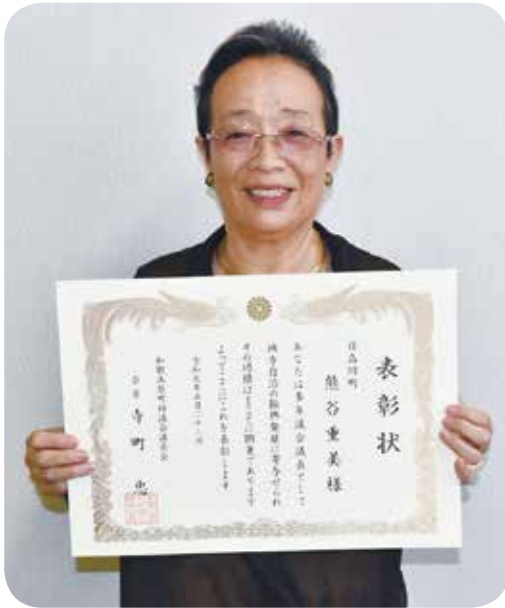 表彰状
日高川町
熊谷重美様
あなたは多年議会議員として
地方自治の振興発展に寄与せられ
その功績はまことに顕著であります
よってここにこれを表彰します
令和元年五月二十八日
和歌山県町村議会議長会
会長 寺町 忠